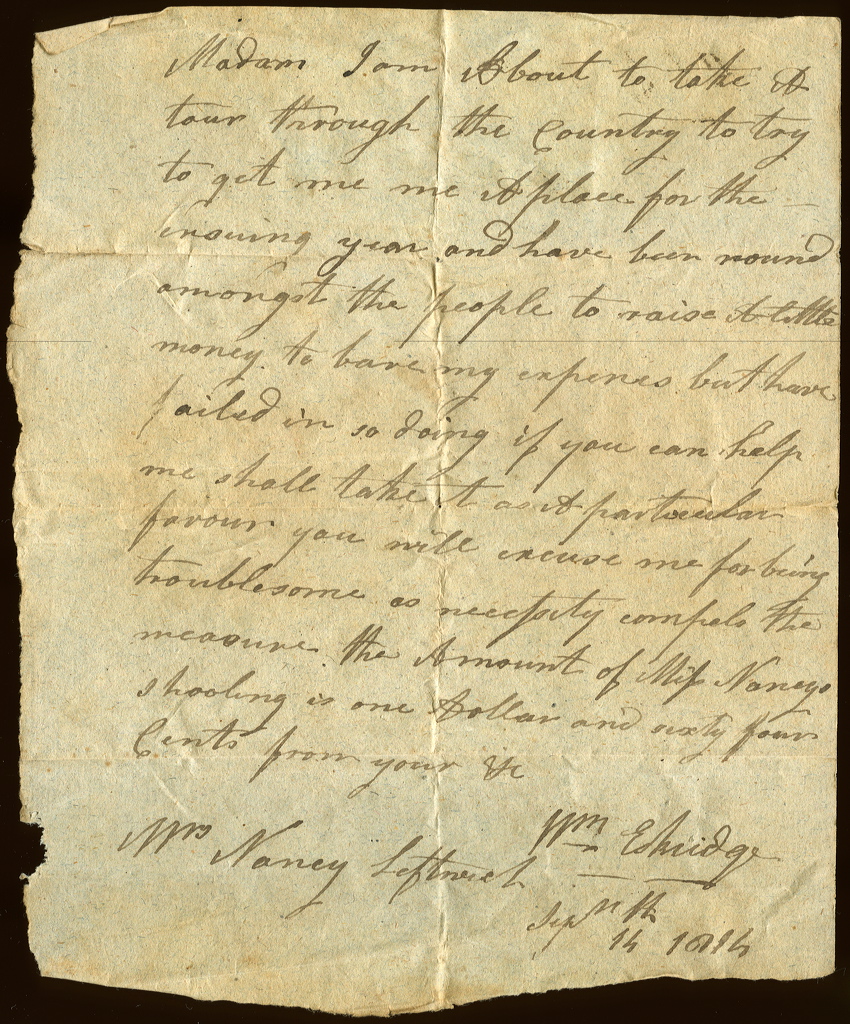 Madam I am About to take A
tour through the Country to try
to get me me A place for the —
insuing year and have been round
amongst the people to raise A little
money to bare my expenes but have
failed in so doing if you can help
me shall take it as A particular
favour you will excuse me for being
troublesome as necessity compels the
measure the Amount of Miss Nancys
shooling is one Dollar and sixty four
Cents from your &c
Wm Eskridge
Mrs Nancy Leftwich
Sepr th
14 1814